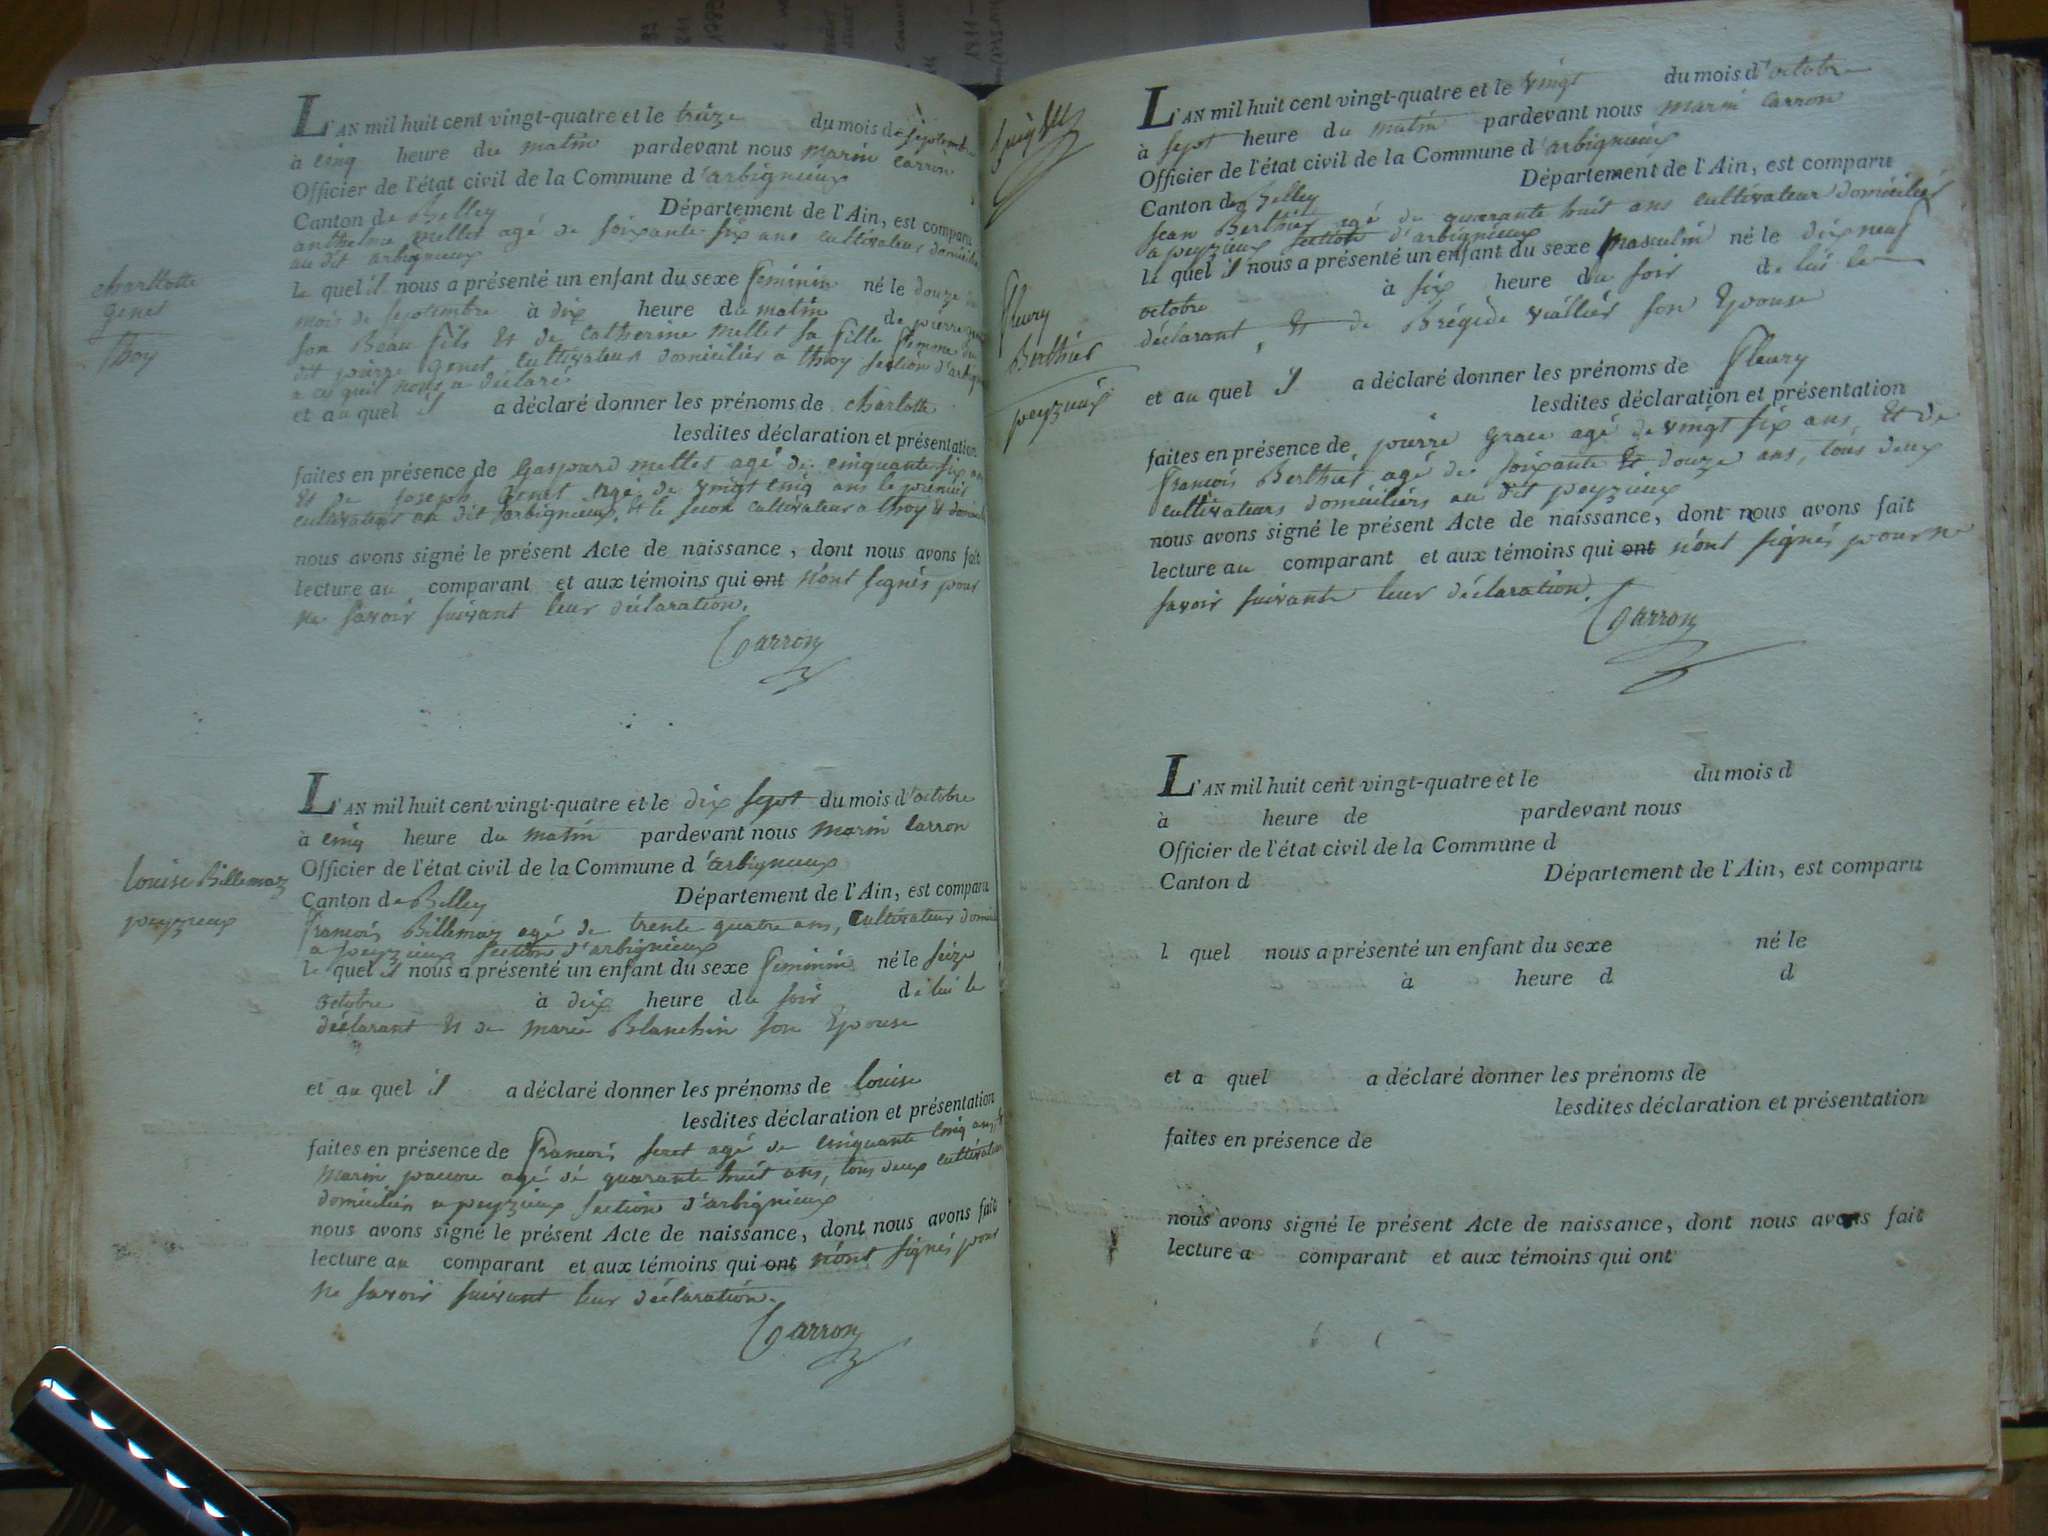 charlotte
genet
thoy
L'AN mil huit cent vingt-quatre et le treize du mois de septembre
à cinq heure du matin pardevant nous marin carron
Officier de l'état civil de la Commune d'arbignieux
Canton de Belley Département de l'Ain, est comparu
anthelme mellet agé de soixante six ans cultivateur domicilié
au dit arbignieux
le quel il nous a présenté un enfant du sexe feminin né le douze du
mois de septembre à dix heure du matin de pierre genet
son Beau fils et de Catherine mellet sa fille femme du
dit pierre genet cultivateurs domiciliés a thoy section d'arbignieux
a ce qu'il nous a déclaré
et au quel il a déclaré donner les prénoms de charlotte
lesdites déclaration et présentation
faites en présence de Gaspard mellet agé de cinquante six ans
et de joseph genet agé de vingt cinq ans le premier
cultivateur au dit arbignieux, et le second cultivateur a thoy
nous avons signé le présent Acte de naissance, dont nous avons fait
lecture au comparant et aux témoins qui ont n'ont signés pour
ne savoir suivant leur déclaration.
Carron
louise Billemaz
peyzieux
L'AN mil huit cent vingt-quatre et le dix sept du mois d'octobre
à cinq heure du matin pardevant nous marin carron
Officier de l'état civil de la Commune d'arbignieux
Canton de Belley Département de l'Ain, est comparu
francois Billemaz agé de trente quatre ans, Cultivateur domicilié
a peyzieux section d'arbignieux
le quel il nous a présenté un enfant du sexe feminin né le seize
octobre à dix heure du soir de lui le
déclarant et de marie Blanchin son Epouse
et au quel il a déclaré donner les prénoms de louise
lesdites déclaration et présentation
faites en présence de francois seret agé de cinquante cinq ans, et
marin paccou agé de quarante huit ans, tous deux cultivateurs
domiciliés a peyzieux section d'arbignieux
nous avons signé le présent Acte de naissance, dont nous avons fait
lecture au comparant et aux témoins qui ont n'ont signés pour
ne savoir suivant leur déclaration.
Carron
fleury
Berthier
peyzieux
L'AN mil huit cent vingt-quatre et le vingt du mois d'octobre
à sept heure du matin pardevant nous marin carron
Officier de l'état civil de la Commune d'arbignieux
Canton de Belley Département de l'Ain, est comparu
jean Berthier agé de quarante huit ans cultivateur domicilié
a peyzieux section d'arbignieux
le quel il nous a présenté un enfant du sexe masculin né le dix neuf
octobre à six heure du soir de lui le
déclarant et de Brégide vuillier son Epouse
et au quel il a déclaré donner les prénoms de fleury
lesdites déclaration et présentation
faites en présence de pierre grace agé de vingt six ans, et de
francois Berthier agé de soixante et douze ans, tous deux
cultivateurs domiciliés au dit peyzieux
nous avons signé le présent Acte de naissance, dont nous avons fait
lecture au comparant et aux témoins qui ont n'ont signés pour ne
savoir suivant leur déclaration.
Carron
L'AN mil huit cent vingt-quatre et le du mois d
à heure de pardevant nous
Officier de l'état civil de la Commune d
Canton d Département de l'Ain, est comparu
l quel nous a présenté un enfant du sexe né le
à heure d d
et a quel a déclaré donner les prénoms de
lesdites déclaration et présentation
faites en présence de
nous avons signé le présent Acte de naissance, dont nous avons fait
lecture a comparant et aux témoins qui ont